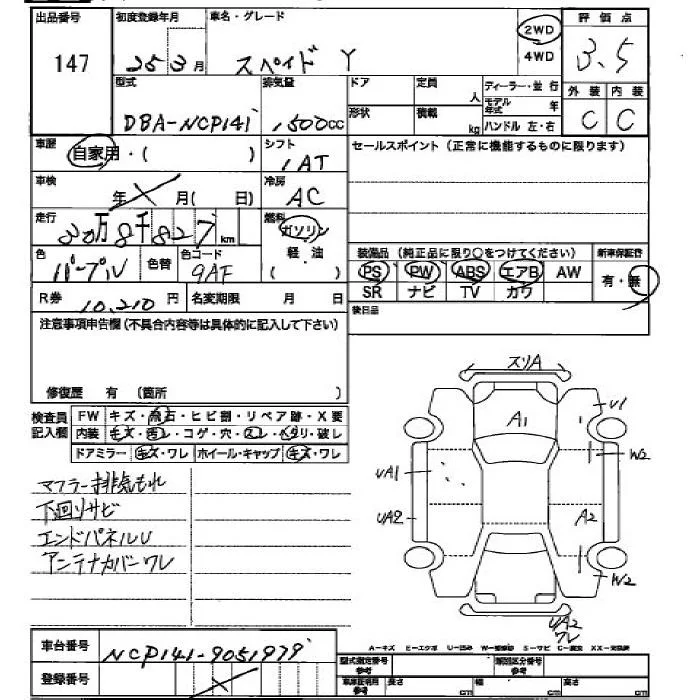 出品番号 初度登録年月 車名・グレード 評価点
147 25 3月 スペイド Y 2WD 4WD 3.5
型式 排気量 ドア 定員 人 ディーラー・並行 外装 内装
DBA-NCP141 1,500cc 形状 積載 kg モデル年式 年 ハンドル 左・右 C C
車歴 自家用・( ) シフト 1AT セールスポイント(正常に機能するものに限ります)
車検 年 月( 日) 冷房 AC
走行 20万8千827km 燃料 ガソリン
色 パープル 色替 色コード 9AF 軽・油 ( ) 装備品(純正品に限り○をつけてください) 新車保証書
PS PW ABS エアB AW 有・無
R券 10,210円 名変期限 月 日 SR ナビ TV カワ
注意事項申告欄(不具合内容等は具体的に記入して下さい) 後日品
修復歴 有 (箇所 )
検査員記入欄 FW キズ・飛石・ヒビ割・リペア跡・X要
内装 キズ・汚レ・コゲ・穴・スレ・ヘタリ・破レ
ドアミラー キズ・ワレ ホイール・キャップ キズ・ワレ
マフラー排気もれ
下回りサビ
エンドパネルU
アンテナカバーワレ
スリA
A1 U1
W2
UA1
UA2 A2
W2
UA2
ワレ
車台番号 NCP141-9051979
A-キズ E-エクボ U-凹み S-サビ
登録番号 型式指定番号 参考 類別区分番号 参考
車庫証明用 参考 長さ cm 幅 cm 高さ cm